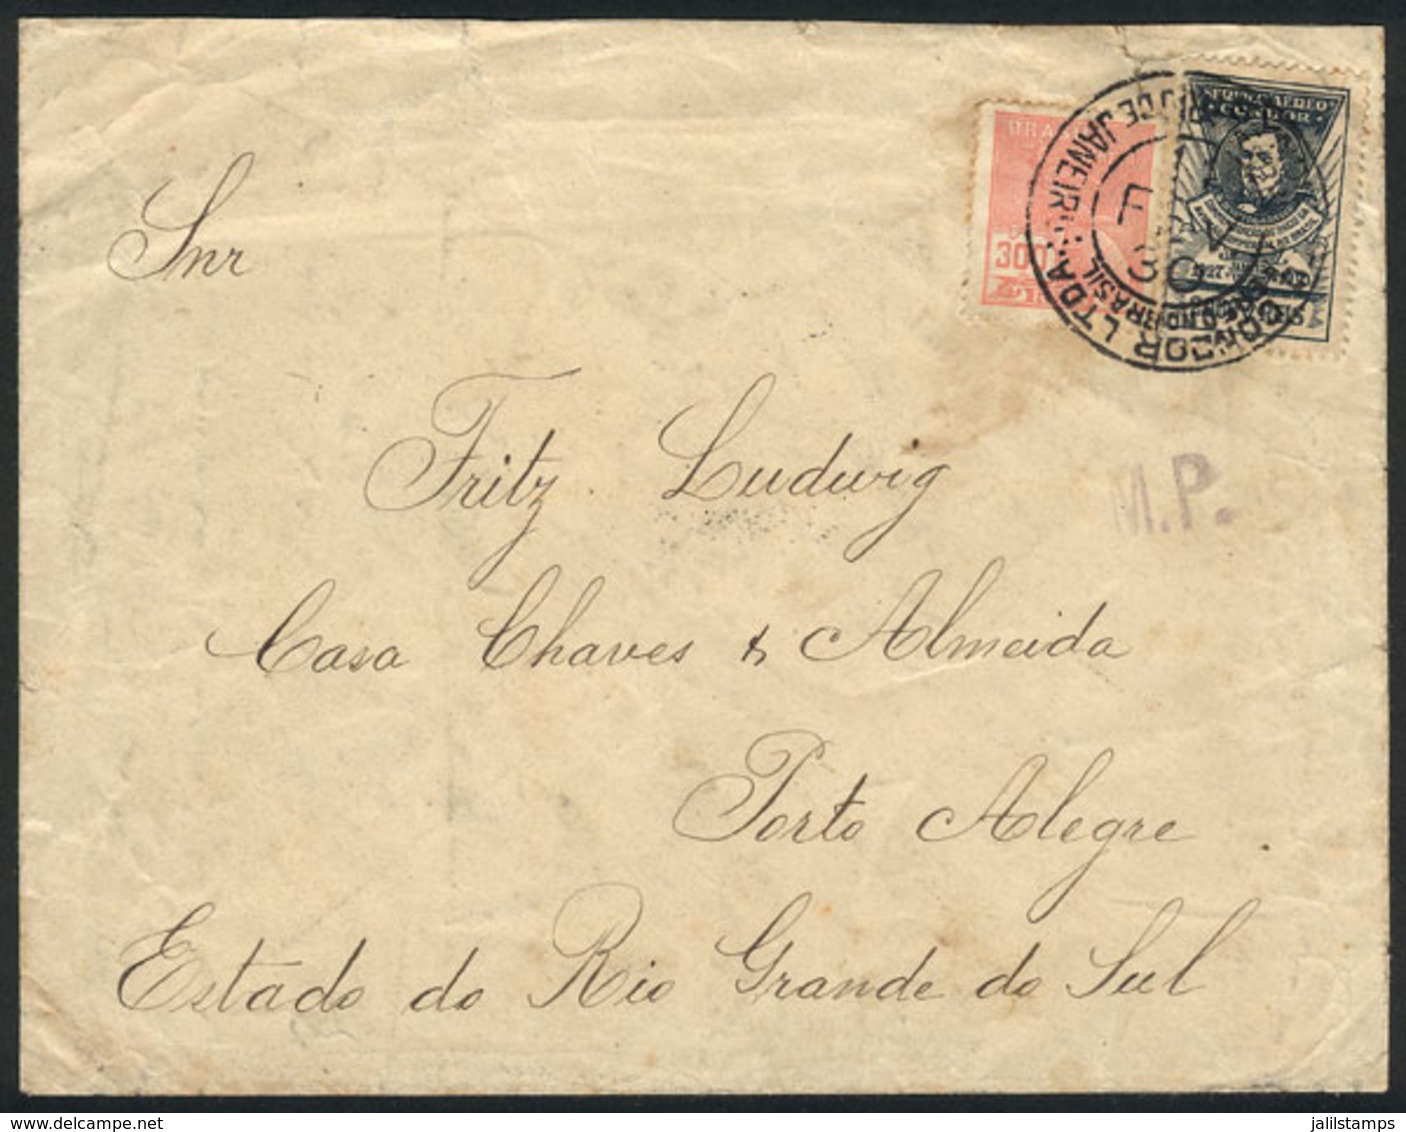 BRA
300
SERVIÇO AEREO
CONDOR
1927
RIO DE JANEIRO
BRASIL
CONDOR LTDA.
30
Snr
Fritz Ludwig
M.P.
Casa Chaves & Almeida
Porto Alegre
Estado do Rio Grande do Sul
delcampe.net
jalilstamps